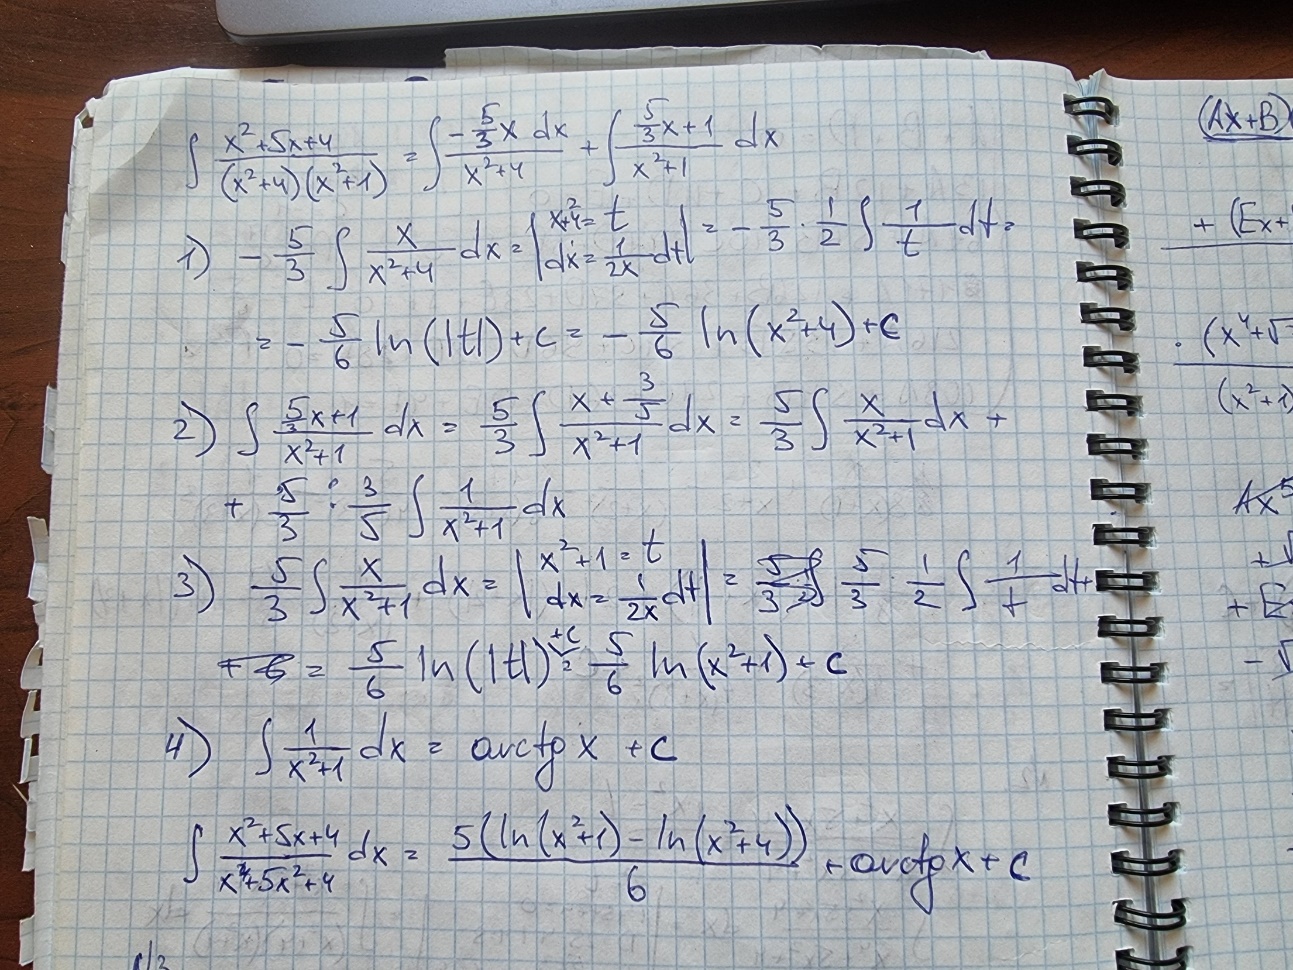 ∫ (x²+5x+4)/((x²+4)(x²+1)) = ∫ (-5/3 x dx)/(x²+4) + ∫ (5/3 x+1)/(x²+1) dx
(Ax+B)
1) -5/3 ∫ x/(x²+4) dx = | x²+4 = t, dx = 1/(2x) dt | = -5/3 · 1/2 ∫ 1/t dt =
+ (Ex+
= -5/6 ln(|t|)+c = -5/6 ln(x²+4)+c
· (x⁴+√
(x²+1)
2) ∫ (5/3 x+1)/(x²+1) dx = 5/3 ∫ (x+3/5)/(x²+1) dx = 5/3 ∫ x/(x²+1) dx +
+ 5/3 · 3/5 ∫ 1/(x²+1) dx
Ax⁵
3) 5/3 ∫ x/(x²+1) dx = | x²+1 = t, dx = 1/(2x) dt | = 5/3 · 1/2 ∫ 1/t dt
= 5/6 ln(|t|)+c = 5/6 ln(x²+1)+c
4) ∫ 1/(x²+1) dx = arctg x + c
∫ (x²+5x+4)/(x⁴+5x²+4) dx = 5(ln(x²+1)-ln(x²+4))/6 + arctg x + c